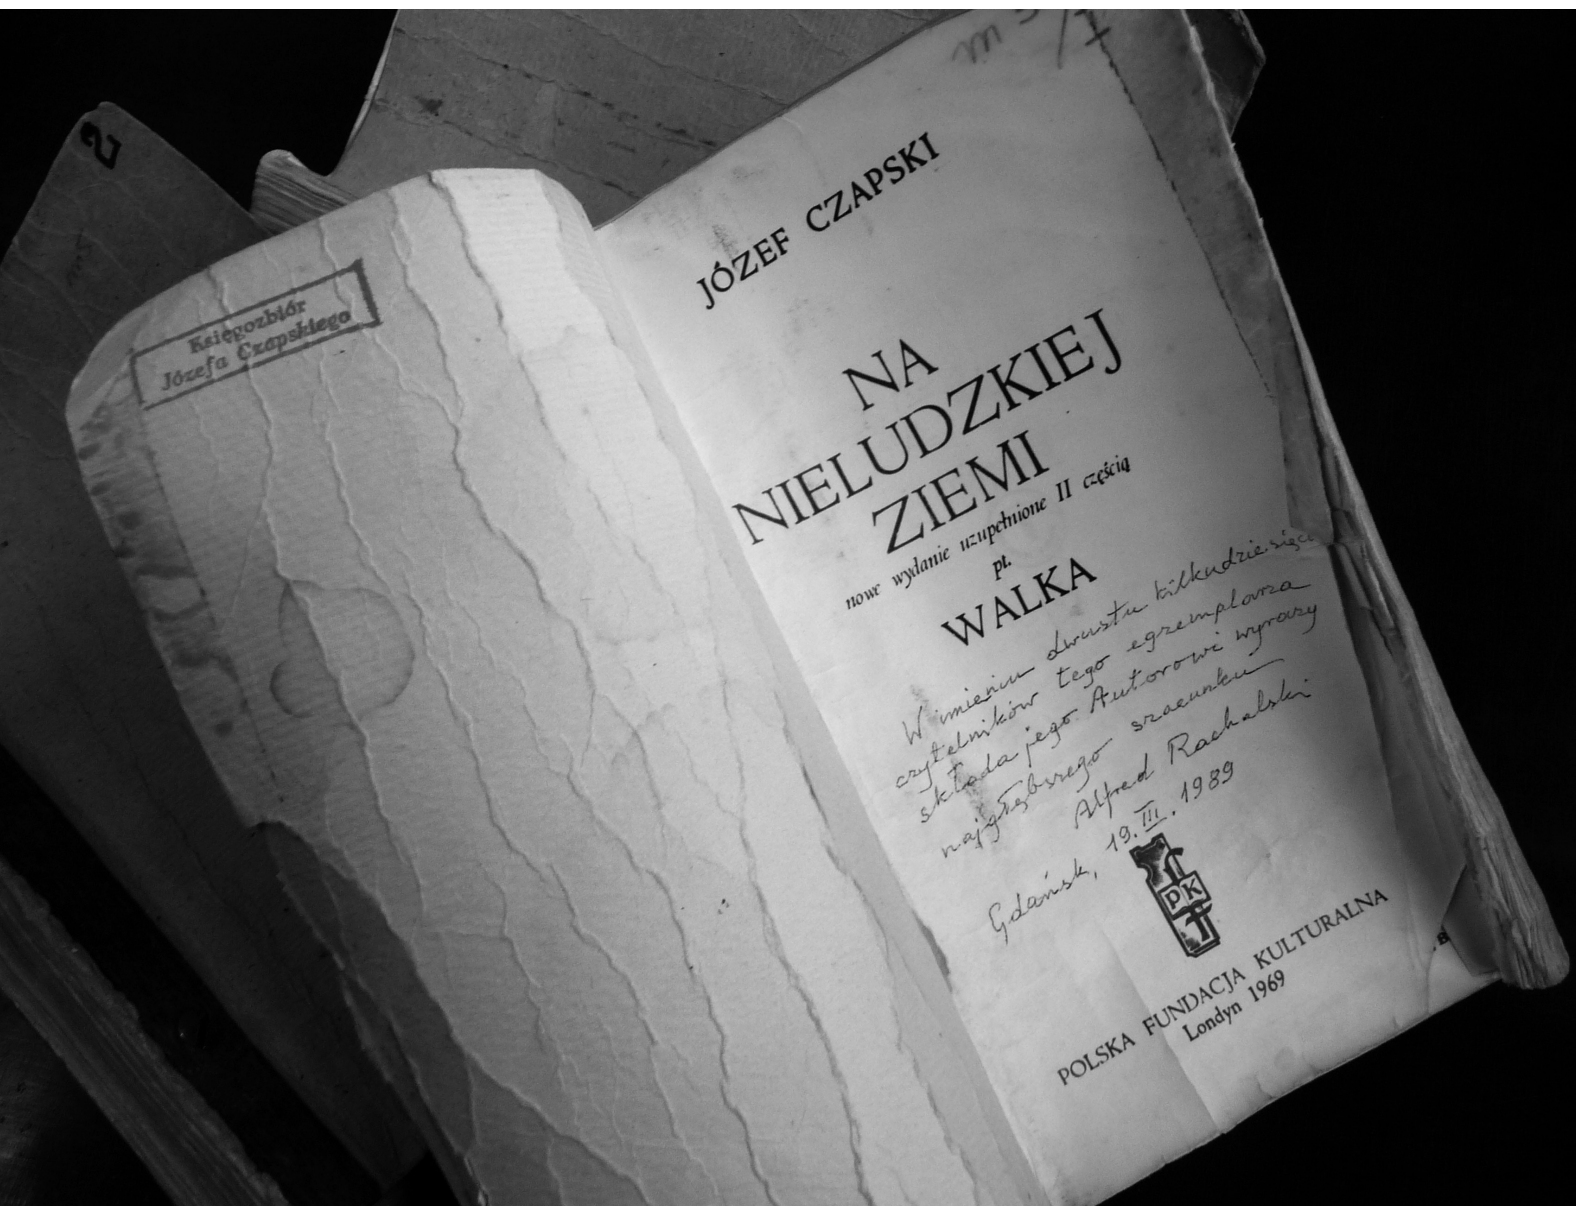 Księgozbiór
Józefa Czapskiego
JÓZEF CZAPSKI
NA
NIELUDZKIEJ
ZIEMI
nowe wydanie uzupełnione II częścią
pt.
WALKA
W imieniu dwustu kilkudziesięciu
czytelników tego egzemplarza
składa jego Autorowi wyrazy
najgłębszego szacunku
Alfred Rachalski
Gdańsk, 19.III.1989
PFK
POLSKA FUNDACJA KULTURALNA
Londyn 1969
2